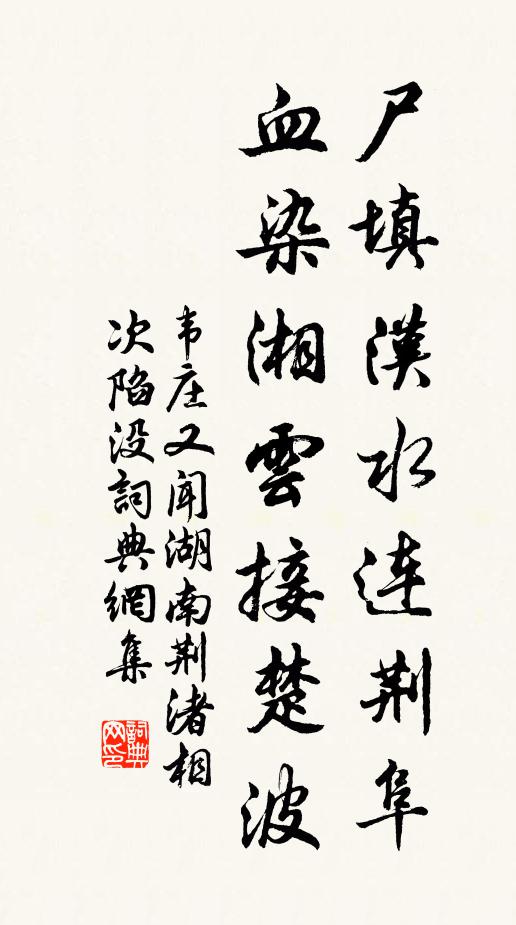 尸填漢水連荆阜
血染湘雲接楚波
韦庄又闻湖南荆渚相
次陷没詞典網集
詞典網印